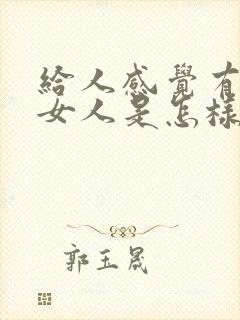 給人感覺有
女人是怎樣
郭玉晟